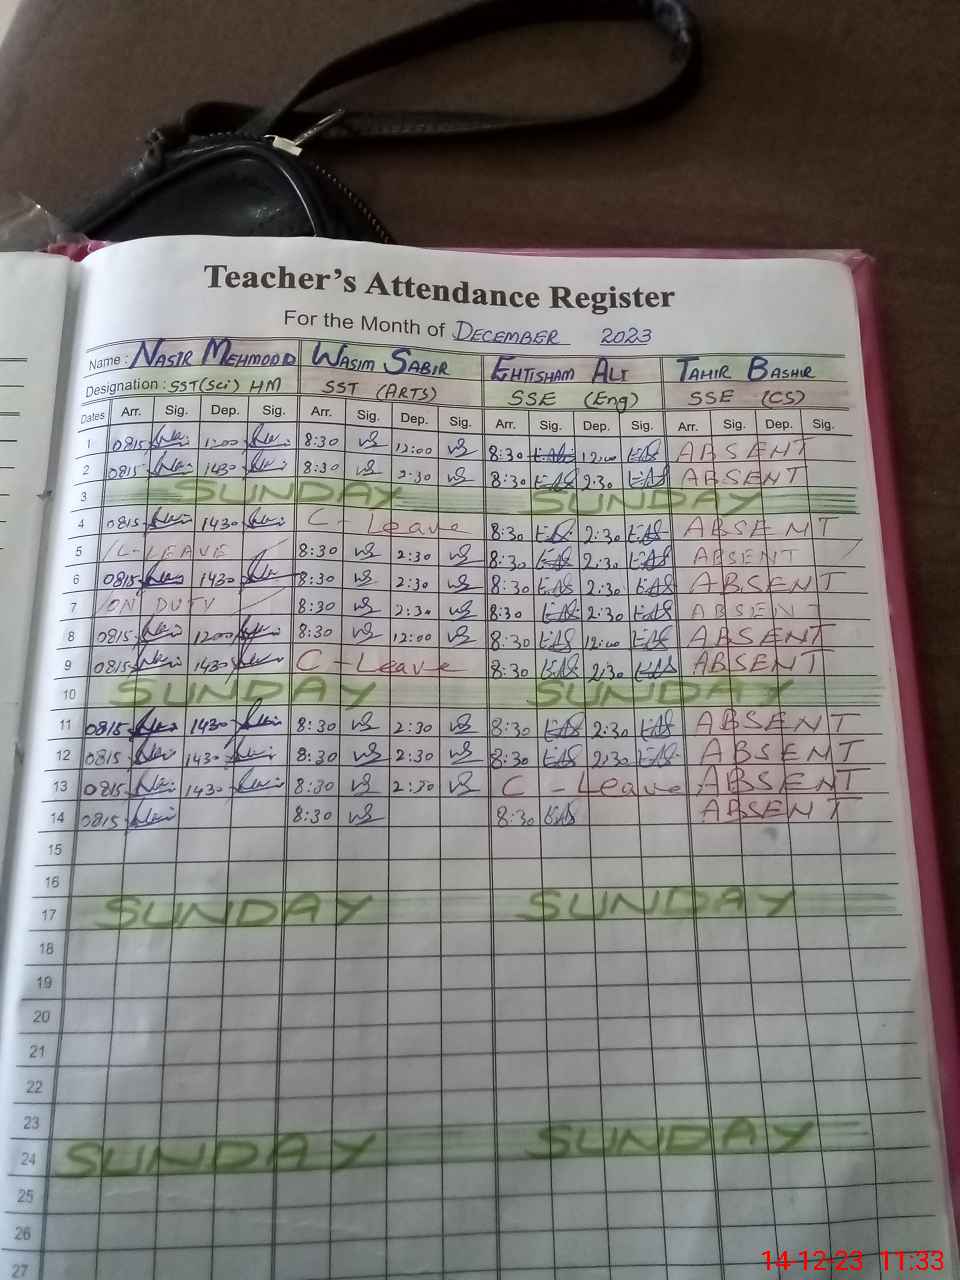 Teacher's Attendance Register
For the Month of DECEMBER 2023
Name : NASIR MEHMOOD WASIM SABIR EHTISHAM ALI TAHIR BASHIR
Designation : SST(Sci) HM SST (ARTS) SSE (Eng) SSE (CS)
Dates Arr. Sig. Dep. Sig. Arr. Sig. Dep. Sig. Arr. Sig. Dep. Sig. Arr. Sig. Dep. Sig.
1 0815 1200 8:30 12:00 8:30 12:00 ABSENT
2 0815 1430 8:30 2:30 8:30 2:30 ABSENT
3 SUNDAY SUNDAY
4 0815 1430 C-Leave 8:30 2:30 ABSENT
5 C-LEAVE 8:30 2:30 8:30 2:30 ABSENT
6 0815 1430 8:30 2:30 8:30 2:30 ABSENT
7 ON DUTY 8:30 2:30 8:30 2:30 ABSENT
8 0815 1200 8:30 12:00 8:30 12:00 ABSENT
9 0815 1430 C-Leave 8:30 2:30 ABSENT
10 SUNDAY SUNDAY
11 0815 1430 8:30 2:30 8:30 2:30 ABSENT
12 0815 1430 8:30 2:30 8:30 2:30 ABSENT
13 0815 1430 8:30 2:30 C-Leave ABSENT
14 0815 8:30 8:30 ABSENT
15
16
17 SUNDAY SUNDAY
18
19
20
21
22
23
24 SUNDAY SUNDAY
25
26
27
14-12-23 11:33